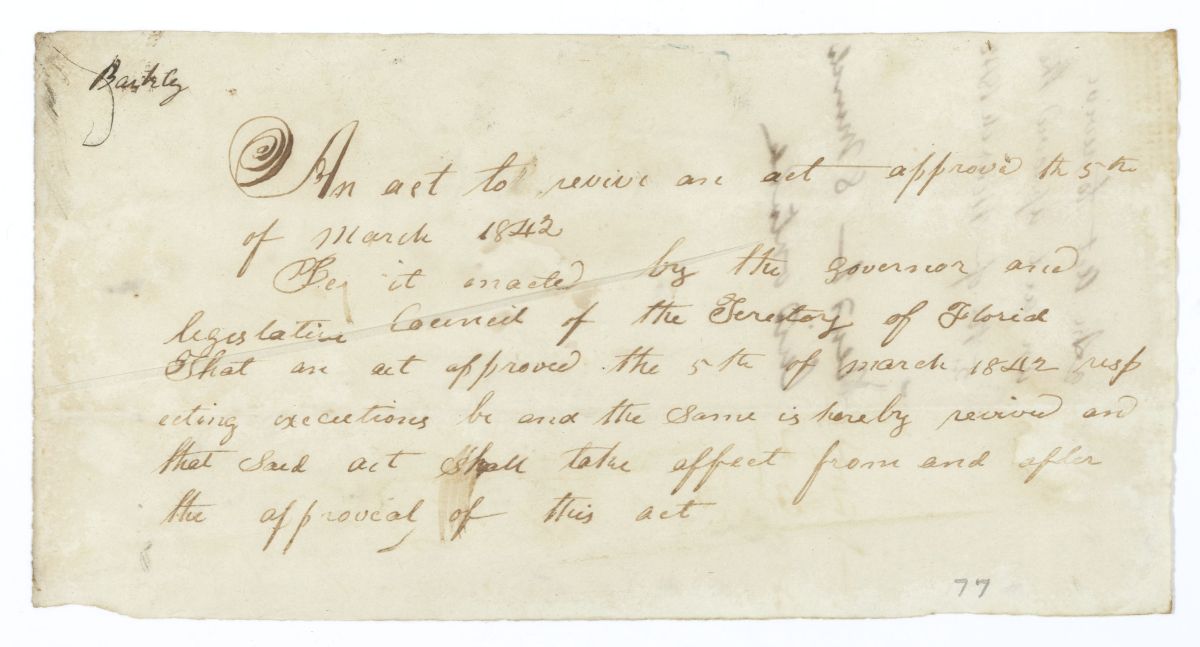 Barkley
An act to revive an act approved th 5th
of march 1842
Be it enacted by the governor and
legislative Council of the Teretory of Florid
That an act approved the 5th of march 1842 resp
ecting executions be and the same is hereby revived and
that Said act Shall take affect from and after
the approveal of this act
77